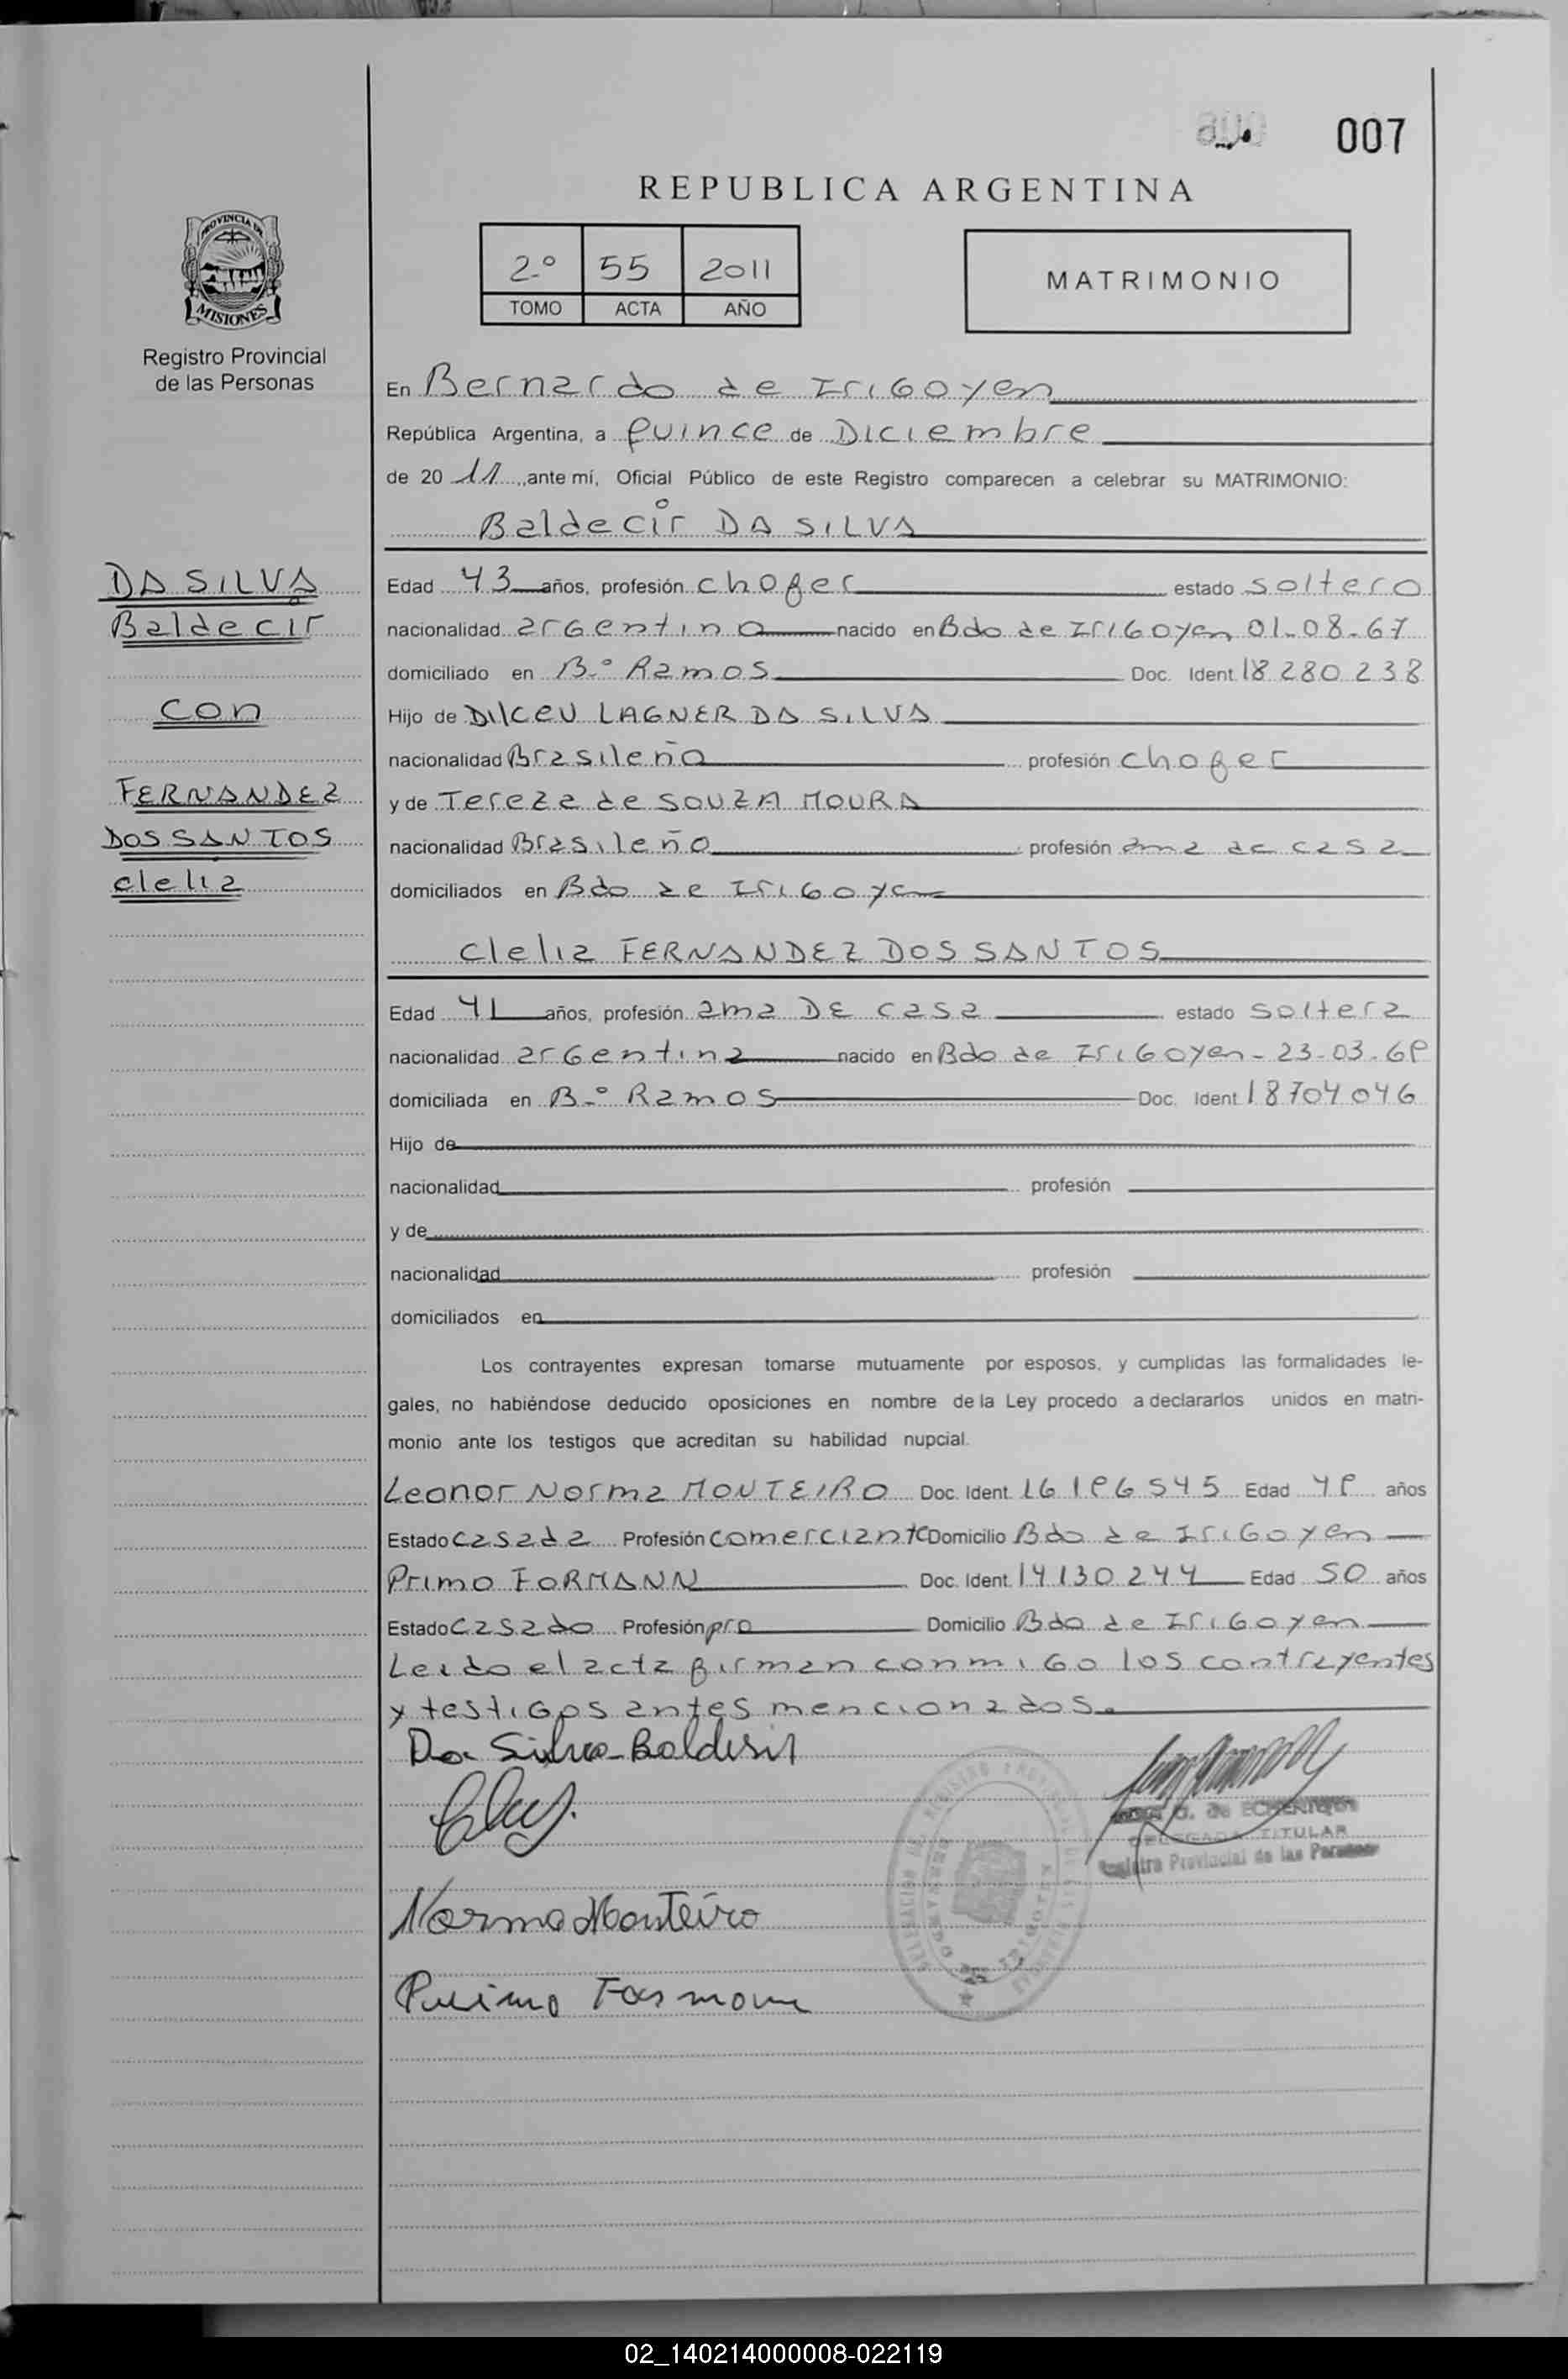 007
REPUBLICA ARGENTINA
2º 55 2011
TOMO ACTA AÑO
MATRIMONIO
PROVINCIA DE
MISIONES
Registro Provincial
de las Personas
En Bernardo de Irigoyen
República Argentina, a quince de Diciembre
de 20 11 ,ante mí, Oficial Público de este Registro comparecen a celebrar su MATRIMONIO:
Baldecir DA SILVA
DA SILVA
Baldecir
con
FERNANDEZ
DOS SANTOS
clelia
Edad 43 años, profesión chofer estado soltero
nacionalidad argentino nacido en Bdo de Irigoyen 01-08-67
domiciliado en B.º Ramos Doc. Ident. 18 280 238
Hijo de Dilceu LAGNER DA SILVA
nacionalidad Brasileña profesión chofer
y de Tereza de SOUZA MOURA
nacionalidad Brasileño profesión ama de casa
domiciliados en Bdo de Irigoyen
clelia FERNANDEZ DOS SANTOS
Edad 41 años, profesión ama DE casa estado soltera
nacionalidad argentina nacido en Bdo de Irigoyen - 23-03-69
domiciliada en B.º Ramos Doc. Ident. 18704046
Hijo de
nacionalidad profesión
y de
nacionalidad profesión
domiciliados en
Los contrayentes expresan tomarse mutuamente por esposos, y cumplidas las formalidades le-
gales, no habiéndose deducido oposiciones en nombre de la Ley procedo a declararlos unidos en matri-
monio ante los testigos que acreditan su habilidad nupcial.
Leonor Norma MONTEIRO Doc. Ident. 16196545 Edad 49 años
Estado casada Profesión comerciante Domicilio Bdo de Irigoyen
Primo FORMANN Doc. Ident. 14130244 Edad 50 años
Estado casado Profesión pro Domicilio Bdo de Irigoyen
Leido el acta firman conmigo los contrayentes
y testigos antes mencionados.
Da Silva Baldesir
Norma Monteiro
Primo Formann
G. de ECHENIQUE
DELEGADA TITULAR
Registro Provincial de las Personas
02_140214000008-022119